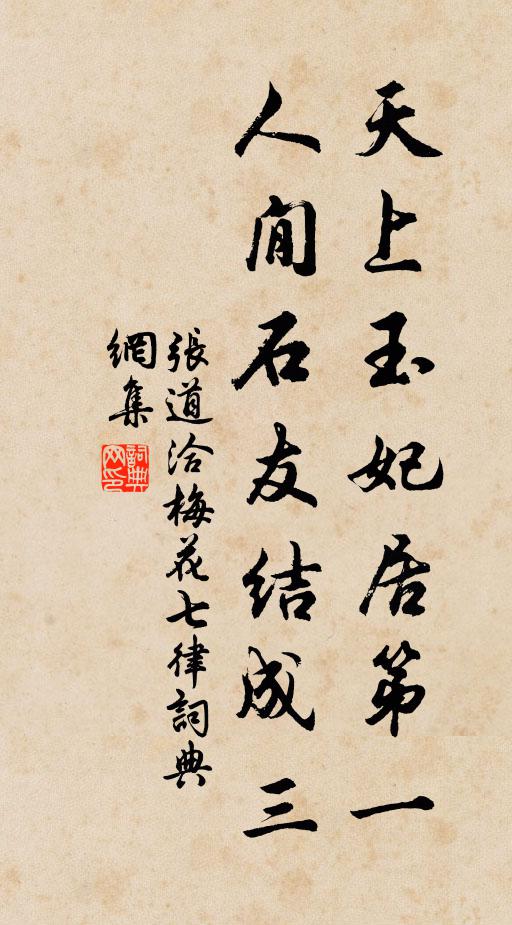 天上玉妃居第一
人间石友结成三
張道洽梅花七律詞典
網集
詞典
网印